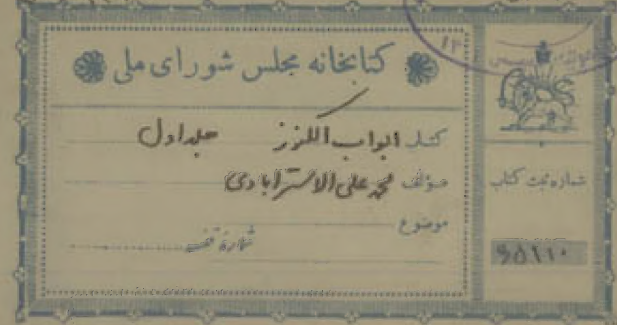 کتابخانه مجلس شورای ملی
کتاب ابواب الکنوز جلد اول
مؤلف محمد علی الاسترابادی
موضوع
شماره قفسه
شماره ثبت کتاب